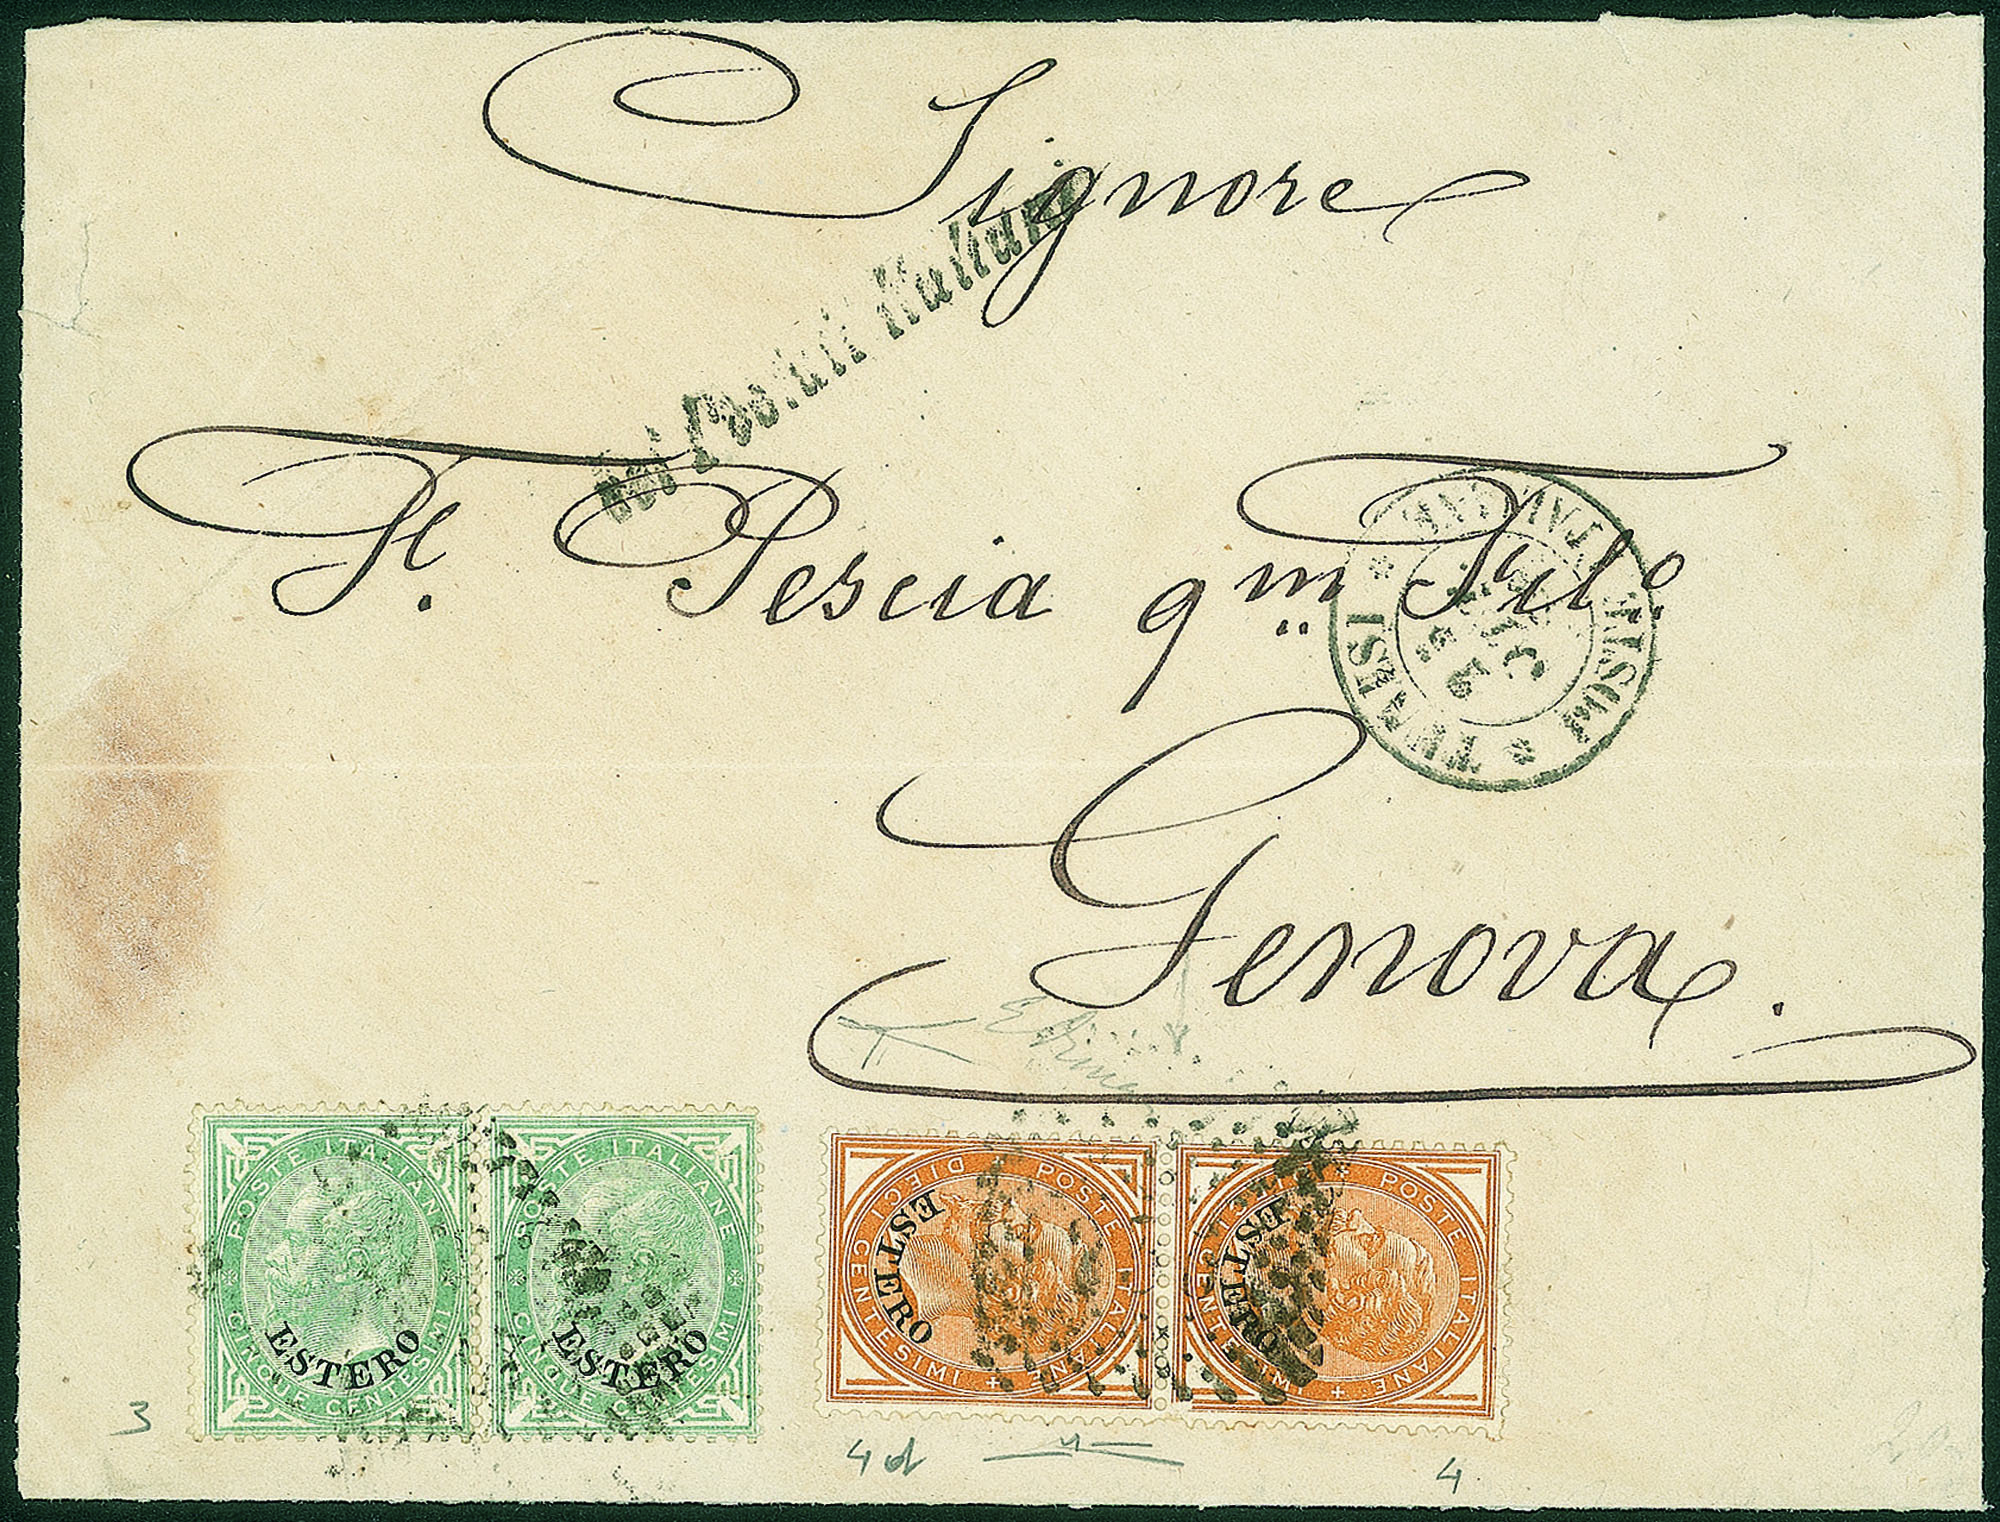 Signore
Postali Italiani
F. Pescia qm Fil.o
TUNISI * POSTE ITALIANE *
Genova.
POSTE ITALIANE
CINQUE CENTESIMI
ESTERO
POSTE ITALIANE
CINQUE CENTESIMI
ESTERO
POSTE ITALIANE
DIECI CENTESIMI
ESTERO
POSTE ITALIANE
DIECI CENTESIMI
ESTERO
3
4d
4
20